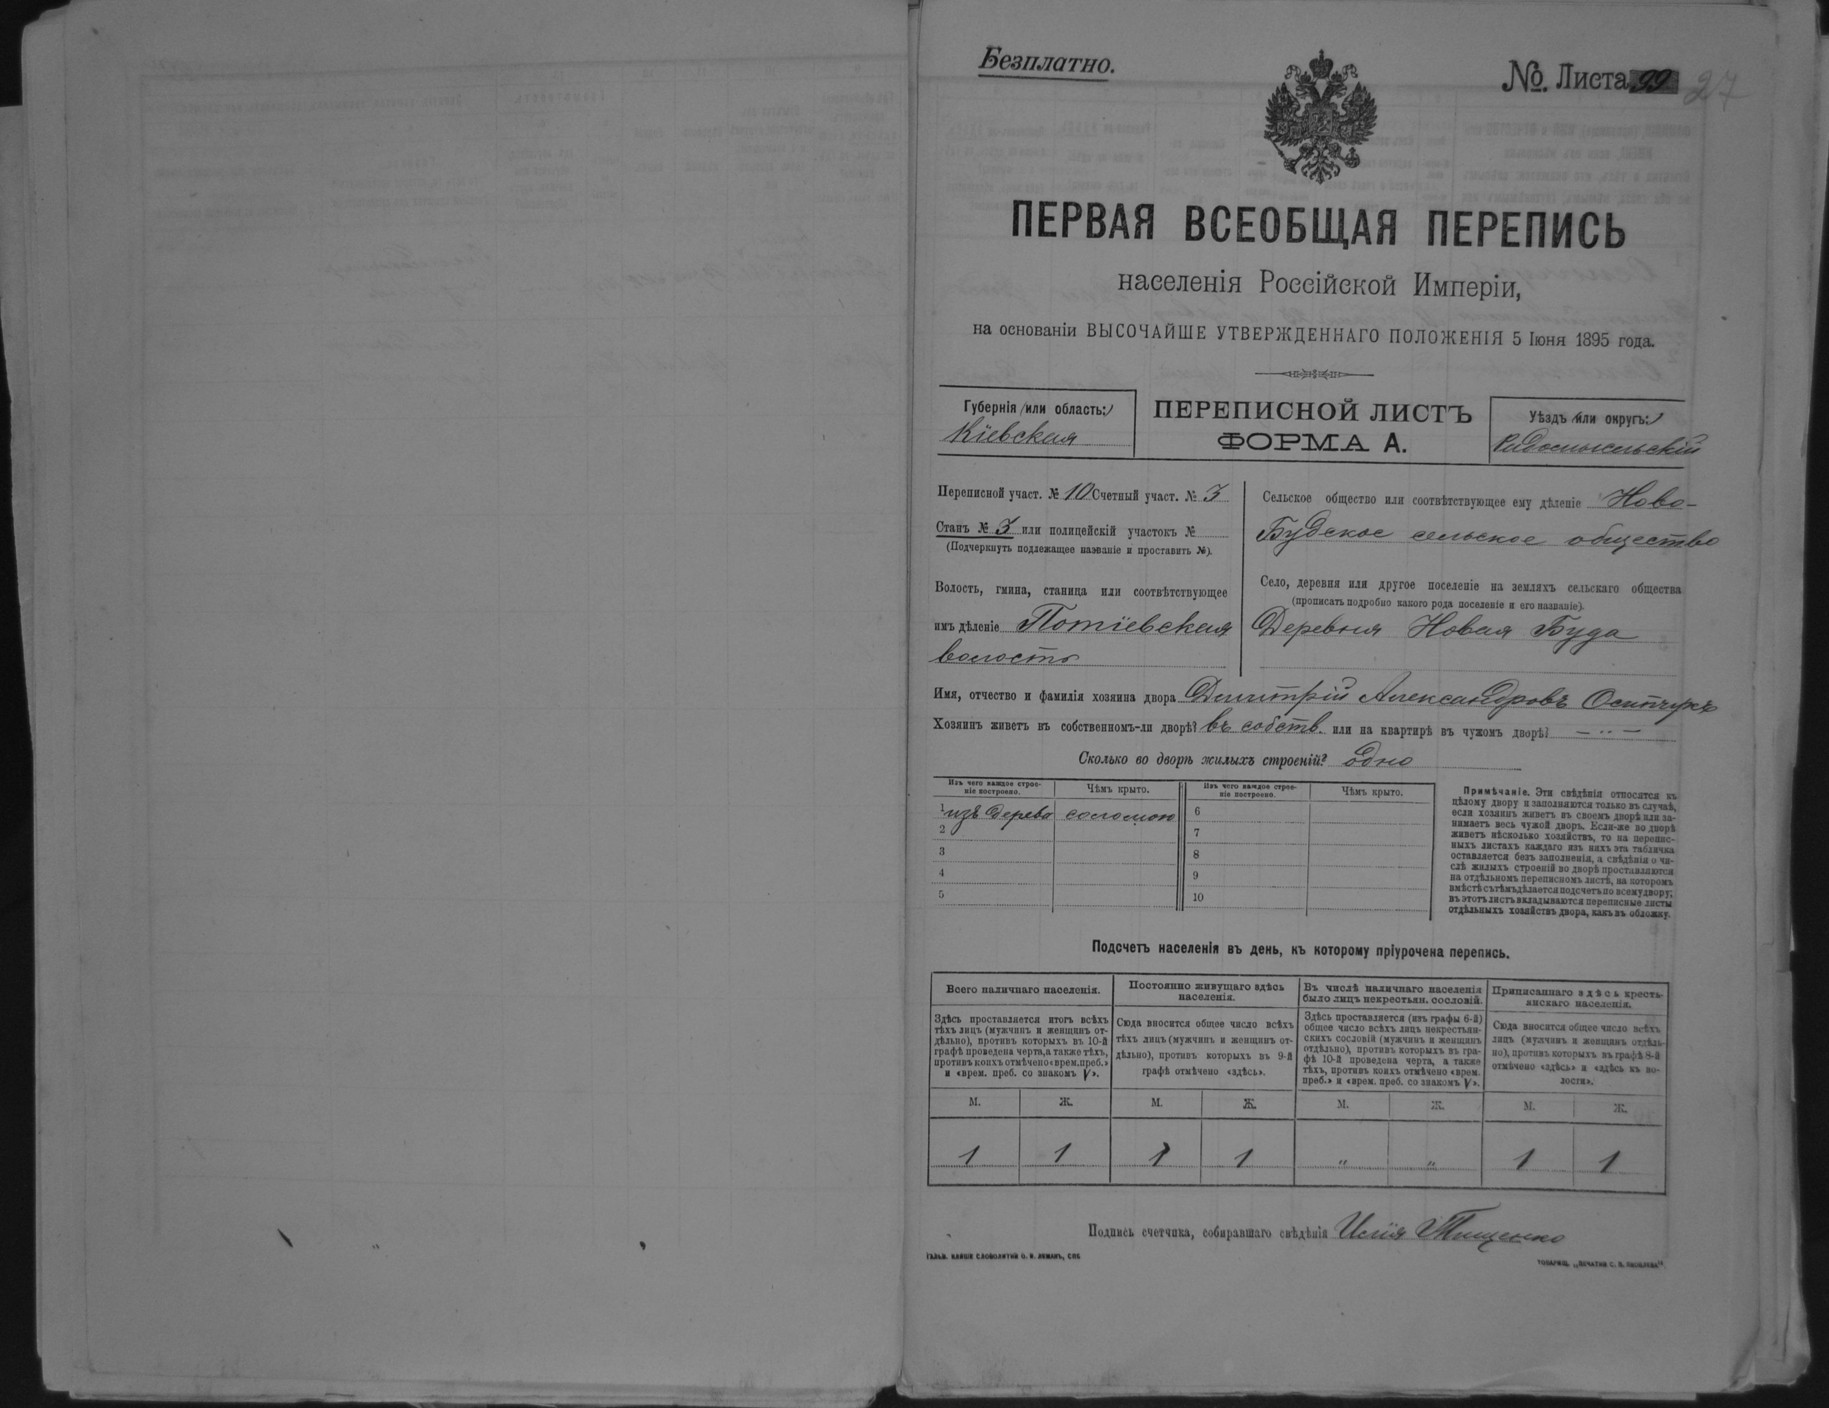 Безплатно.
№. Листа 99 27
ПЕРВАЯ ВСЕОБЩАЯ ПЕРЕПИСЬ
населенія Россійской Имперіи,
на основаніи ВЫСОЧАЙШЕ УТВЕРЖДЕННАГО ПОЛОЖЕНІЯ 5 Іюня 1895 года.
Губернія (или область:)
Кіевская
ПЕРЕПИСНОЙ ЛИСТЪ
ФОРМА А.
Уѣздъ (или округъ:)
Радомысльскій
Переписной участ. № 10 Счетный участ. № 3
Станъ № 3 или полицейскій участокъ №
(Подчеркнуть подлежащее названіе и проставить №).
Волость, гмина, станица или соотвѣтствующее
имъ дѣленіе Потіевская
волость
Сельское общество или соотвѣтствующее ему дѣленіе Ново-
Будское сельское общество
Село, деревня или другое поселеніе на земляхъ сельскаго общества
(прописать подробно какого рода поселеніе и его названіе).
Деревня Новая Буда
Имя, отчество и фамилія хозяина двора Димитрій Александровъ Осипчукъ
Хозяинъ живетъ въ собственномъ-ли дворѣ? въ собств. или на квартирѣ въ чужомъ дворѣ? — „ —
Сколько во дворѣ жилыхъ строеній? одно
Изъ чего каждое строе-
ніе построено.
Чѣмъ крыто.
Изъ чего каждое строе-
ніе построено.
Чѣмъ крыто.
1 изъ дерева соломою 6
2 7
3 8
4 9
5 10
Примѣчаніе. Эти свѣдѣнія относятся къ
цѣлому двору и заполняются только въ случаѣ,
если хозяинъ живетъ въ своемъ дворѣ или за-
нимаетъ весь чужой дворъ. Если-же во дворѣ
живетъ нѣсколько хозяйствъ, то на перепис-
ныхъ листахъ каждаго изъ нихъ эта табличка
оставляется безъ заполненія, а свѣдѣнія о чи-
слѣ жилыхъ строеній во дворѣ проставляются
на отдѣльномъ переписномъ листѣ, на которомъ
вмѣстѣ съ тѣмъ дѣлается подсчетъ по всему двору;
въ этотъ листъ вкладываются переписные листы
отдѣльныхъ хозяйствъ двора, какъ въ обложку.
Подсчетъ населенія въ день, къ которому пріурочена перепись.
Всего наличнаго населенія.
Здѣсь проставляется итогъ всѣхъ
тѣхъ лицъ (мужчинъ и женщинъ от-
дѣльно), противъ которыхъ въ 10-й
графѣ проведена черта, а также тѣхъ,
противъ коихъ отмѣчено «врем. преб.»
и «врем. преб. со знакомъ V».
Постоянно живущаго здѣсь
населенія.
Сюда вносится общее число всѣхъ
тѣхъ лицъ (мужчинъ и женщинъ от-
дѣльно), противъ которыхъ въ 9-й
графѣ отмѣчено «здѣсь».
Въ числѣ наличнаго населенія
было лицъ некрестьян. сословій.
Здѣсь проставляется (изъ графы 6-й)
общее число всѣхъ лицъ некрестьян-
скихъ сословій (мужчинъ и женщинъ
отдѣльно), противъ которыхъ въ гра-
фѣ 10-й проведена черта, а также
тѣхъ, противъ коихъ отмѣчено «врем.
преб.» и «врем. преб. со знакомъ V».
Приписаннаго здѣсь кресть-
янскаго населенія.
Сюда вносится общее число всѣхъ
лицъ (мужчинъ и женщинъ отдѣль-
но), противъ которыхъ въ графѣ 8-й
отмѣчено «здѣсь» и «здѣсь къ во-
лости».
М. Ж. М. Ж. М. Ж. М. Ж.
1 1 1 1 „ „ 1 1
Подпись счетчика, собиравшаго свѣдѣнія Илія Тищенко
ТОВАРИЩ. „ПЕЧАТНЯ С. П. ЯКОВЛЕВА“.